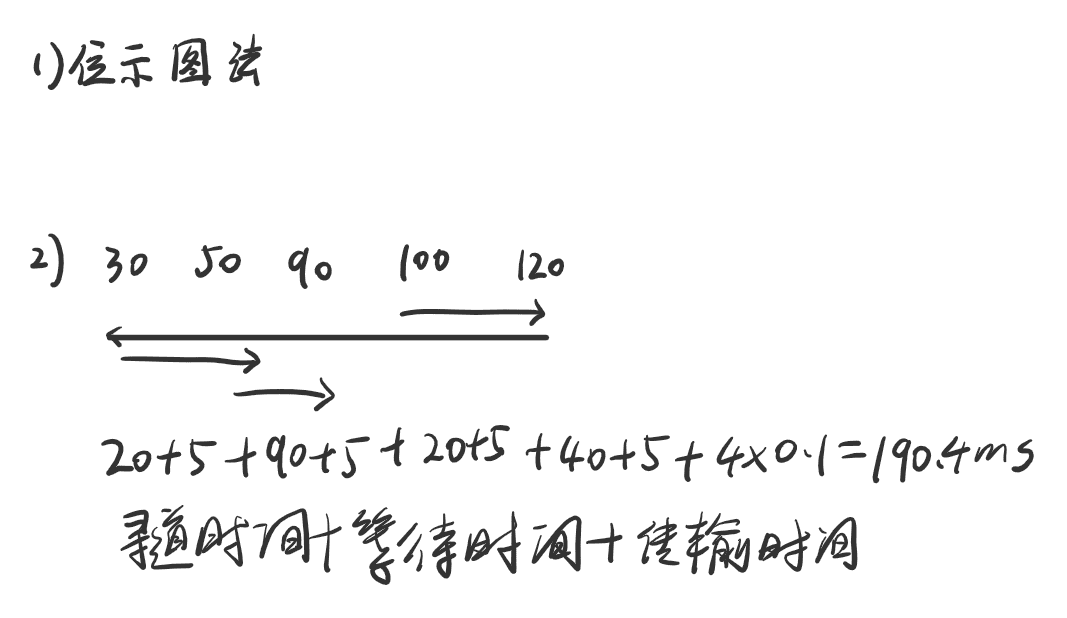 1)位示图法
2) 30 50 90 100 120
20+5+90+5+20+5+40+5+4×0.1=190.4ms
寻道时间+等待时间+传输时间